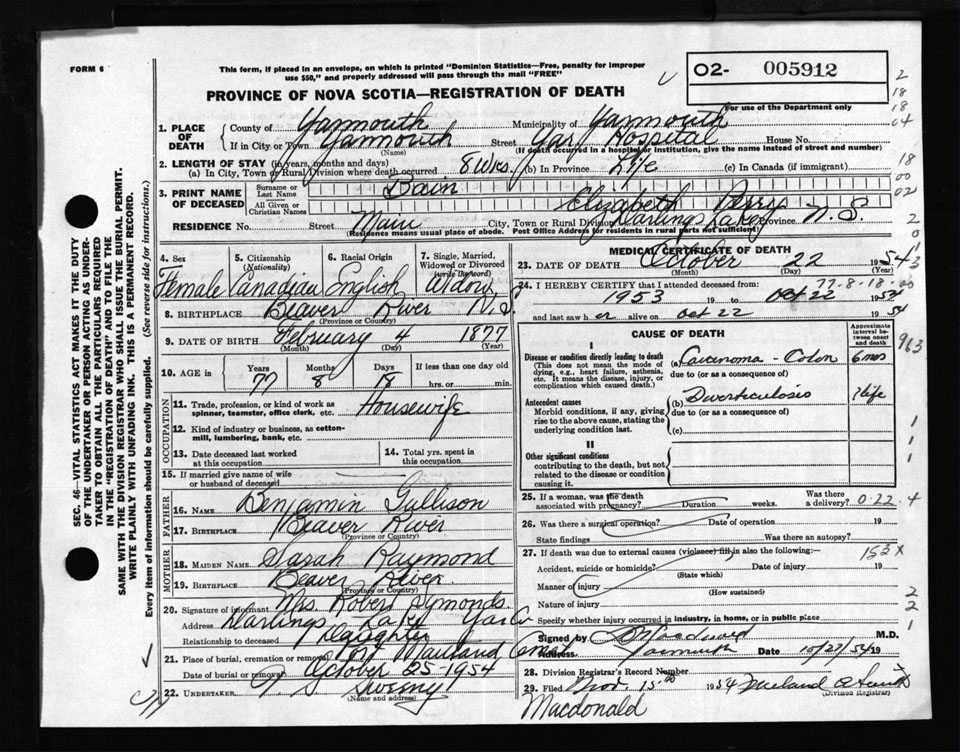 FORM 6
This form, if placed in an envelope, on which is printed "Dominion Statistics—Free, penalty for improper
use $50," and properly addressed will pass through the mail "FREE"
O2- 005912
For use of the Department only
PROVINCE OF NOVA SCOTIA—REGISTRATION OF DEATH
2
18
18
04
18
00
02
2
0
1
3
963
1
1
1
4
2
2
1
SEC. 46—VITAL STATISTICS ACT MAKES IT THE DUTY
OF THE UNDERTAKER OR PERSON ACTING AS UNDER-
TAKER TO OBTAIN ALL THE PARTICULARS REQUIRED
IN THE "REGISTRATION OF DEATH" AND TO FILE THE
SAME WITH THE DIVISION REGISTRAR WHO SHALL ISSUE THE BURIAL PERMIT.
WRITE PLAINLY WITH UNFADING INK. THIS IS A PERMANENT RECORD.
Every item of information should be carefully supplied. (See reverse side for instructions.)
1. PLACE OF DEATH
County of Yarmouth Municipality of Yarmouth
If in City or Town Yarmouth Street Yar Hospital House No.
(Name) (If death occurred in a hospital or institution, give the name instead of street and number)
2. LENGTH OF STAY (in years, months and days)
(a) In City, Town or Rural Division where death occurred 8 wks. (b) In Province Life (c) In Canada (if immigrant)
3. PRINT NAME OF DECEASED
Surname or Last Name Bain
All Given or Christian Names Elizabeth Perry
RESIDENCE No. Street Main City, Town or Rural Division Darlings Lake Province N.S.
(Residence means usual place of abode. Post Office Address for residents in rural parts not sufficient)
4. Sex Female
5. Citizenship (Nationality) Canadian
6. Racial Origin English
7. Single, Married, Widowed or Divorced (write the word) Widow
8. BIRTHPLACE Beaver River N.S.
(Province or Country)
9. DATE OF BIRTH February 4 1877
(Month) (Day) (Year)
10. AGE in Years 77 Months 8 Days 18 If less than one day hrs. or min.
OCCUPATION
11. Trade, profession, or kind of work as spinner, teamster, office clerk, etc. Housewife
12. Kind of industry or business, as cotton-mill, lumbering, bank, etc.
13. Date deceased last worked at this occupation
14. Total yrs. spent in this occupation
15. If married give name of wife or husband of deceased
FATHER
16. NAME Benjamin Gullison
17. BIRTHPLACE Beaver River
(Province or Country)
MOTHER
18. MAIDEN NAME Sarah Raymond
19. BIRTHPLACE Beaver River
(Province or Country)
20. Signature of informant Mrs. Robert Symonds.
Address Darlings Lake Yar Co
Relationship to deceased Daughter
21. Place of burial, cremation or removal Pt Maitland Cem
Date of burial or removal October 25-1954
22. UNDERTAKER Sweeny
(Name and address)
MEDICAL CERTIFICATE OF DEATH
23. DATE OF DEATH October 22 1954
(Month) (Day) (Year)
77-8-18-00
24. I HEREBY CERTIFY that I attended deceased from:
1953 19 to Oct 22 1954
and last saw her alive on Oct 22 1954
CAUSE OF DEATH
Approximate interval between onset and death
I
Disease or condition directly leading to death
(This does not mean the mode of dying, e.g., heart failure, asthenia, etc. It means the disease, injury, or complication which caused death.)
(a) Carcinoma - Colon 6 mos
due to (or as a consequence of)
Antecedent causes
Morbid conditions, if any, giving rise to the above cause, stating the underlying condition last.
(b) Diverticulosis ? life
due to (or as a consequence of)
(c)
II
Other significant conditions
contributing to the death, but not related to the disease or condition causing it.
25. If a woman, was the death associated with pregnancy? Duration weeks. Was there a delivery? 0-22
26. Was there a surgical operation? Date of operation 19
State findings Was there an autopsy?
27. If death was due to external causes (violence) fill in also the following:— 153X
Accident, suicide or homicide? Date of injury 19
(State which)
Manner of injury
(How sustained)
Nature of injury
Specify whether injury occurred in industry, in home, or in public place
Signed by Macdonald M.D.
Address Yarmouth Date 10/27/54 19
28. Division Registrar's Record Number
29. Filed Nov. 15 1954
(Division Registrar)
Macdonald